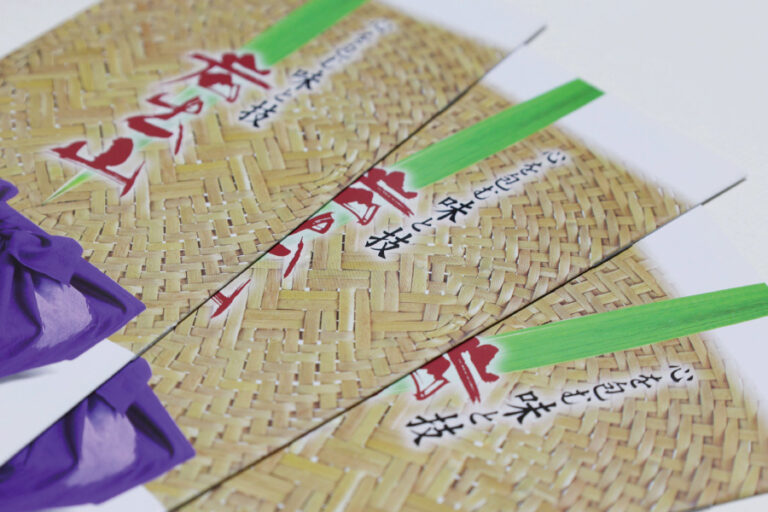 心を包む
味と技
心を包む
味と技
心を包む
味と技